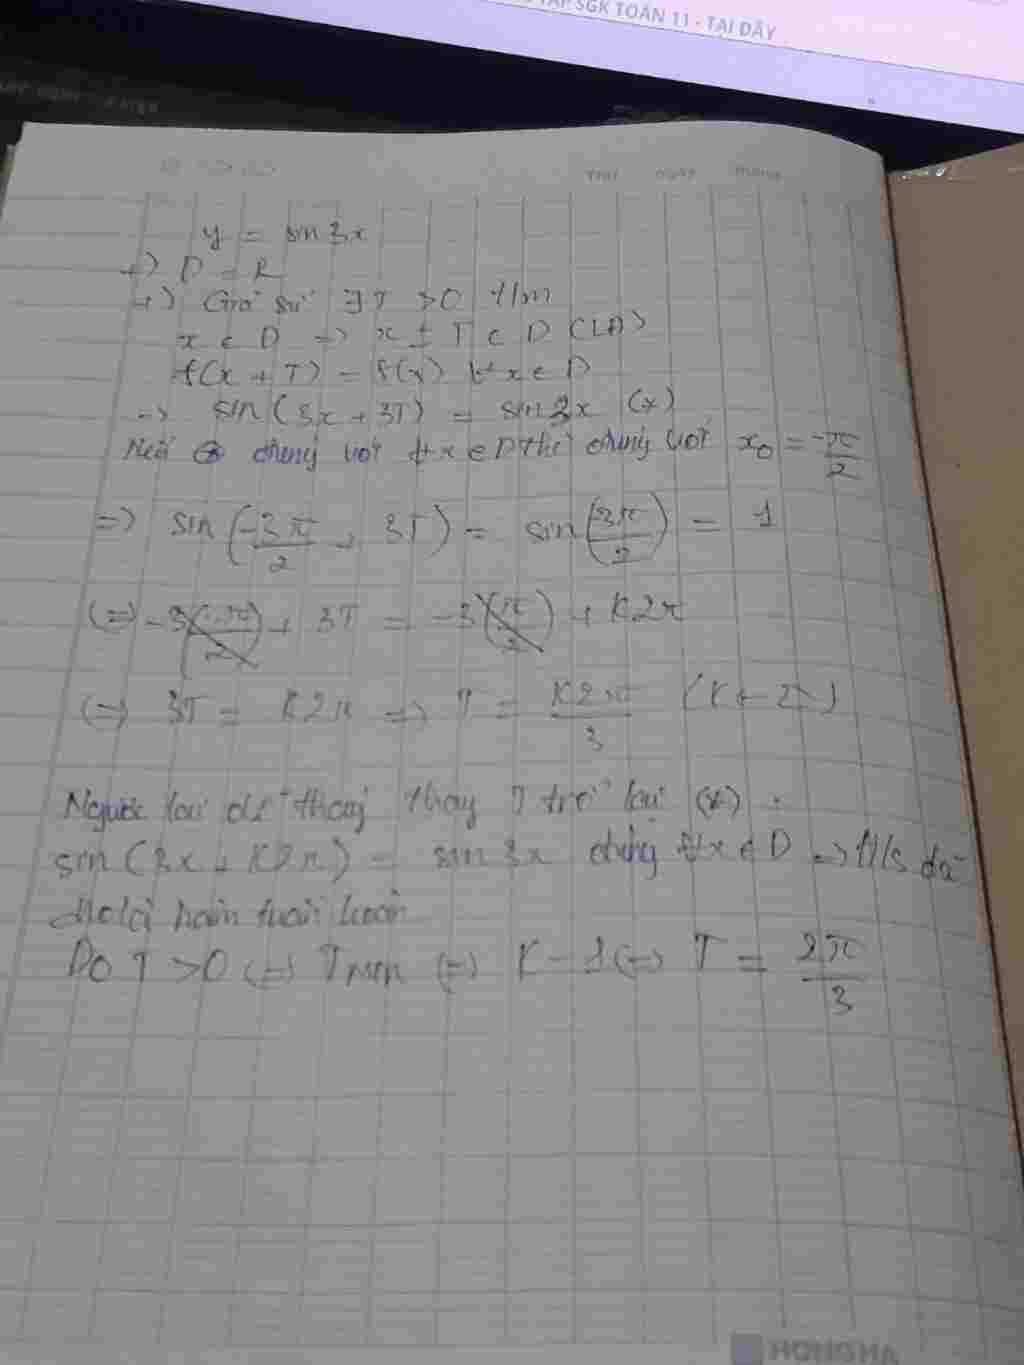 TẬP SGK TOÁN 11 - TẠI ĐÂY
THỨ NGÀY THÁNG
y = sin 3x
+) D = R
+) Giả sử ∃T >0 t/m
x ∈ D => x ± T ∈ D (LĐ)
f(x + T) = f(x) ∀x ∈ D
=> sin(3x + 3T) = sin 3x (*)
Nếu đúng với ∀x ∈ D thì đúng với x₀ = -π/2
=> sin(-3π/2 + 3T) = sin(3π/2) = 1
(=) -3(-π/2) + 3T = -3(π/2) + K2π
(=) 3T = K2π => T = K2π/3 (K ∈ Z)
Ngược lại thay T trở lại (*) :
sin(3x + K2π) = sin 3x đúng ∀x ∈ D => H/s đã
cho là hàm tuần hoàn
Do T >0 (=) Tmin (=) K = 1 (=) T = 2π/3
HONG HA